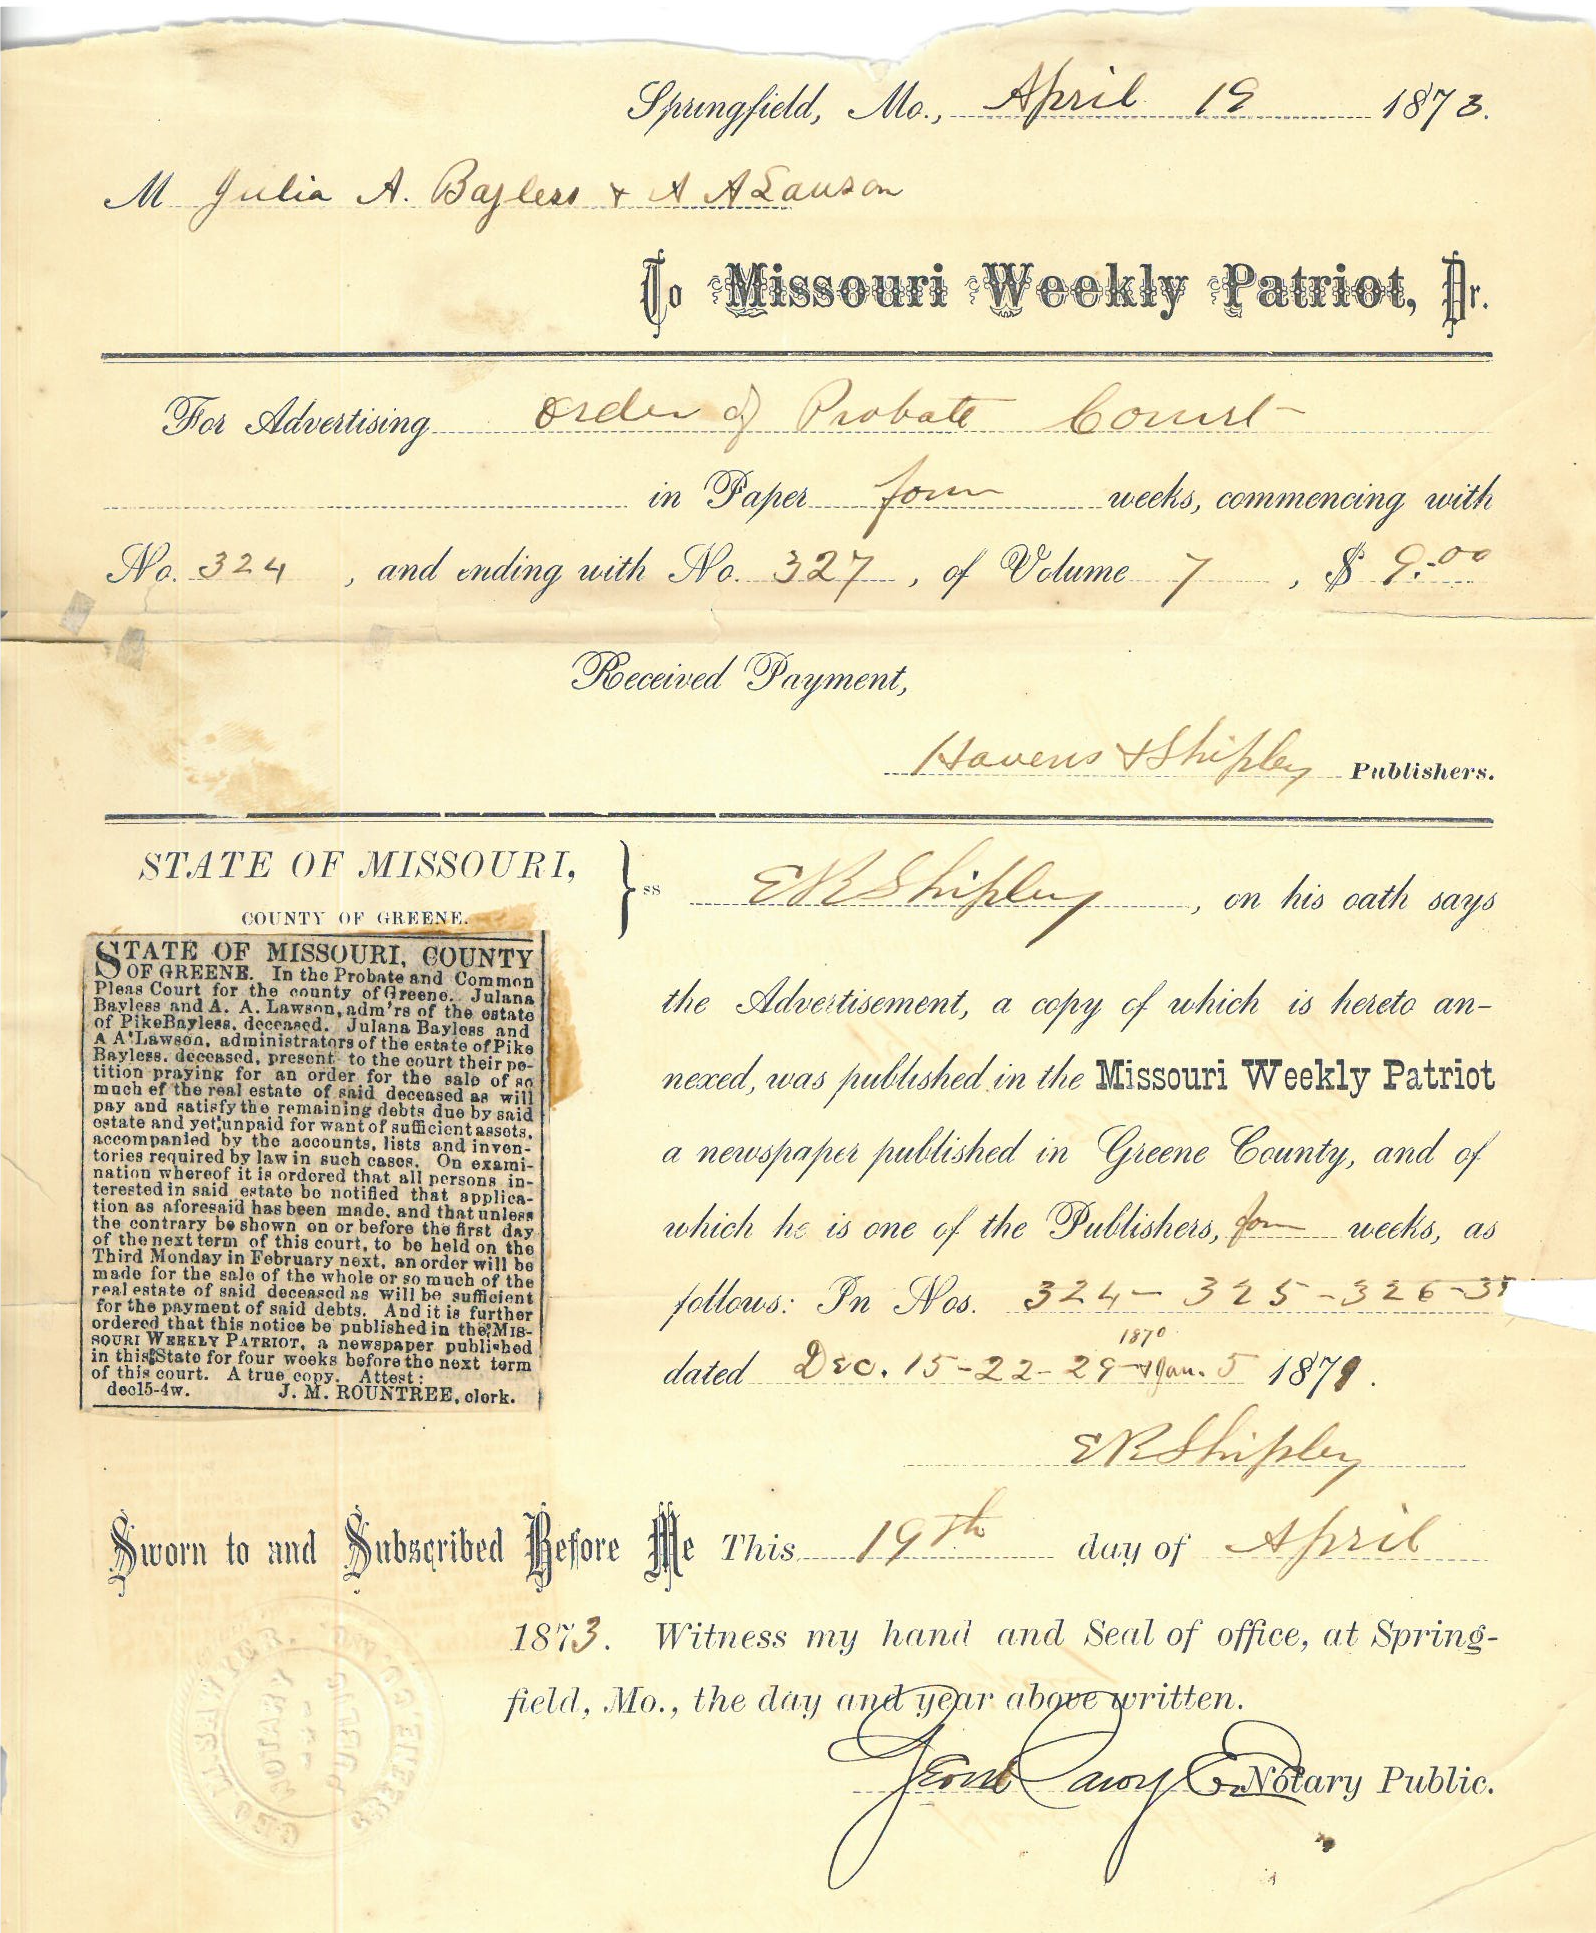 Springfield, Mo., April 19 1873.
M Julia A. Bayless & A A Lawson
To Missouri Weekly Patriot, Dr.
For Advertising order of Probate Court
in Paper four weeks, commencing with
No. 324, and ending with No. 327, of Volume 7, $ 9.00
Received Payment,
Havens & Shipley Publishers.
STATE OF MISSOURI,
COUNTY OF GREENE.
} ss E R Shipley, on his oath says
the Advertisement, a copy of which is hereto an-
nexed, was published in the Missouri Weekly Patriot
a newspaper published in Greene County, and of
which he is one of the Publishers, four weeks, as
follows: In Nos. 324 - 325 - 326 - 
1870
dated Dec. 15 - 22 - 29 - & Jan. 5 1871.
E R Shipley
STATE OF MISSOURI, COUNTY
OF GREENE. In the Probate and Common
Pleas Court for the county of Greene. Julana
Bayless and A. A. Lawson, adm'rs of the estate
of Pike Bayless, deceased. Julana Bayless and
A A Lawson, administrators of the estate of Pike
Bayless, deceased, present to the court their pe-
tition praying for an order for the sale of so
much ef the real estate of said deceased as will
pay and satisfy the remaining debts due by said
estate and yet unpaid for want of sufficient assets,
accompanied by the accounts, lists and inven-
tories required by law in such cases. On exami-
nation whereof it is ordered that all persons in-
terested in said estate be notified that applica-
tion as aforesaid has been made, and that unless
the contrary be shown on or before the first day
of the next term of this court, to be held on the
Third Monday in February next, an order will be
made for the sale of the whole or so much of the
real estate of said deceased as will be sufficient
for the payment of said debts. And it is further
ordered that this notice be published in the MIS-
SOURI WEEKLY PATRIOT, a newspaper published
in this State for four weeks before the next term
of this court. A true copy. Attest:
dec15-4w. J. M. ROUNTREE, clerk.
Sworn to and Subscribed Before Me This 19th day of April
1873. Witness my hand and Seal of office, at Spring-
field, Mo., the day and year above written.
Notary Public.
NOTARY PUBLIC